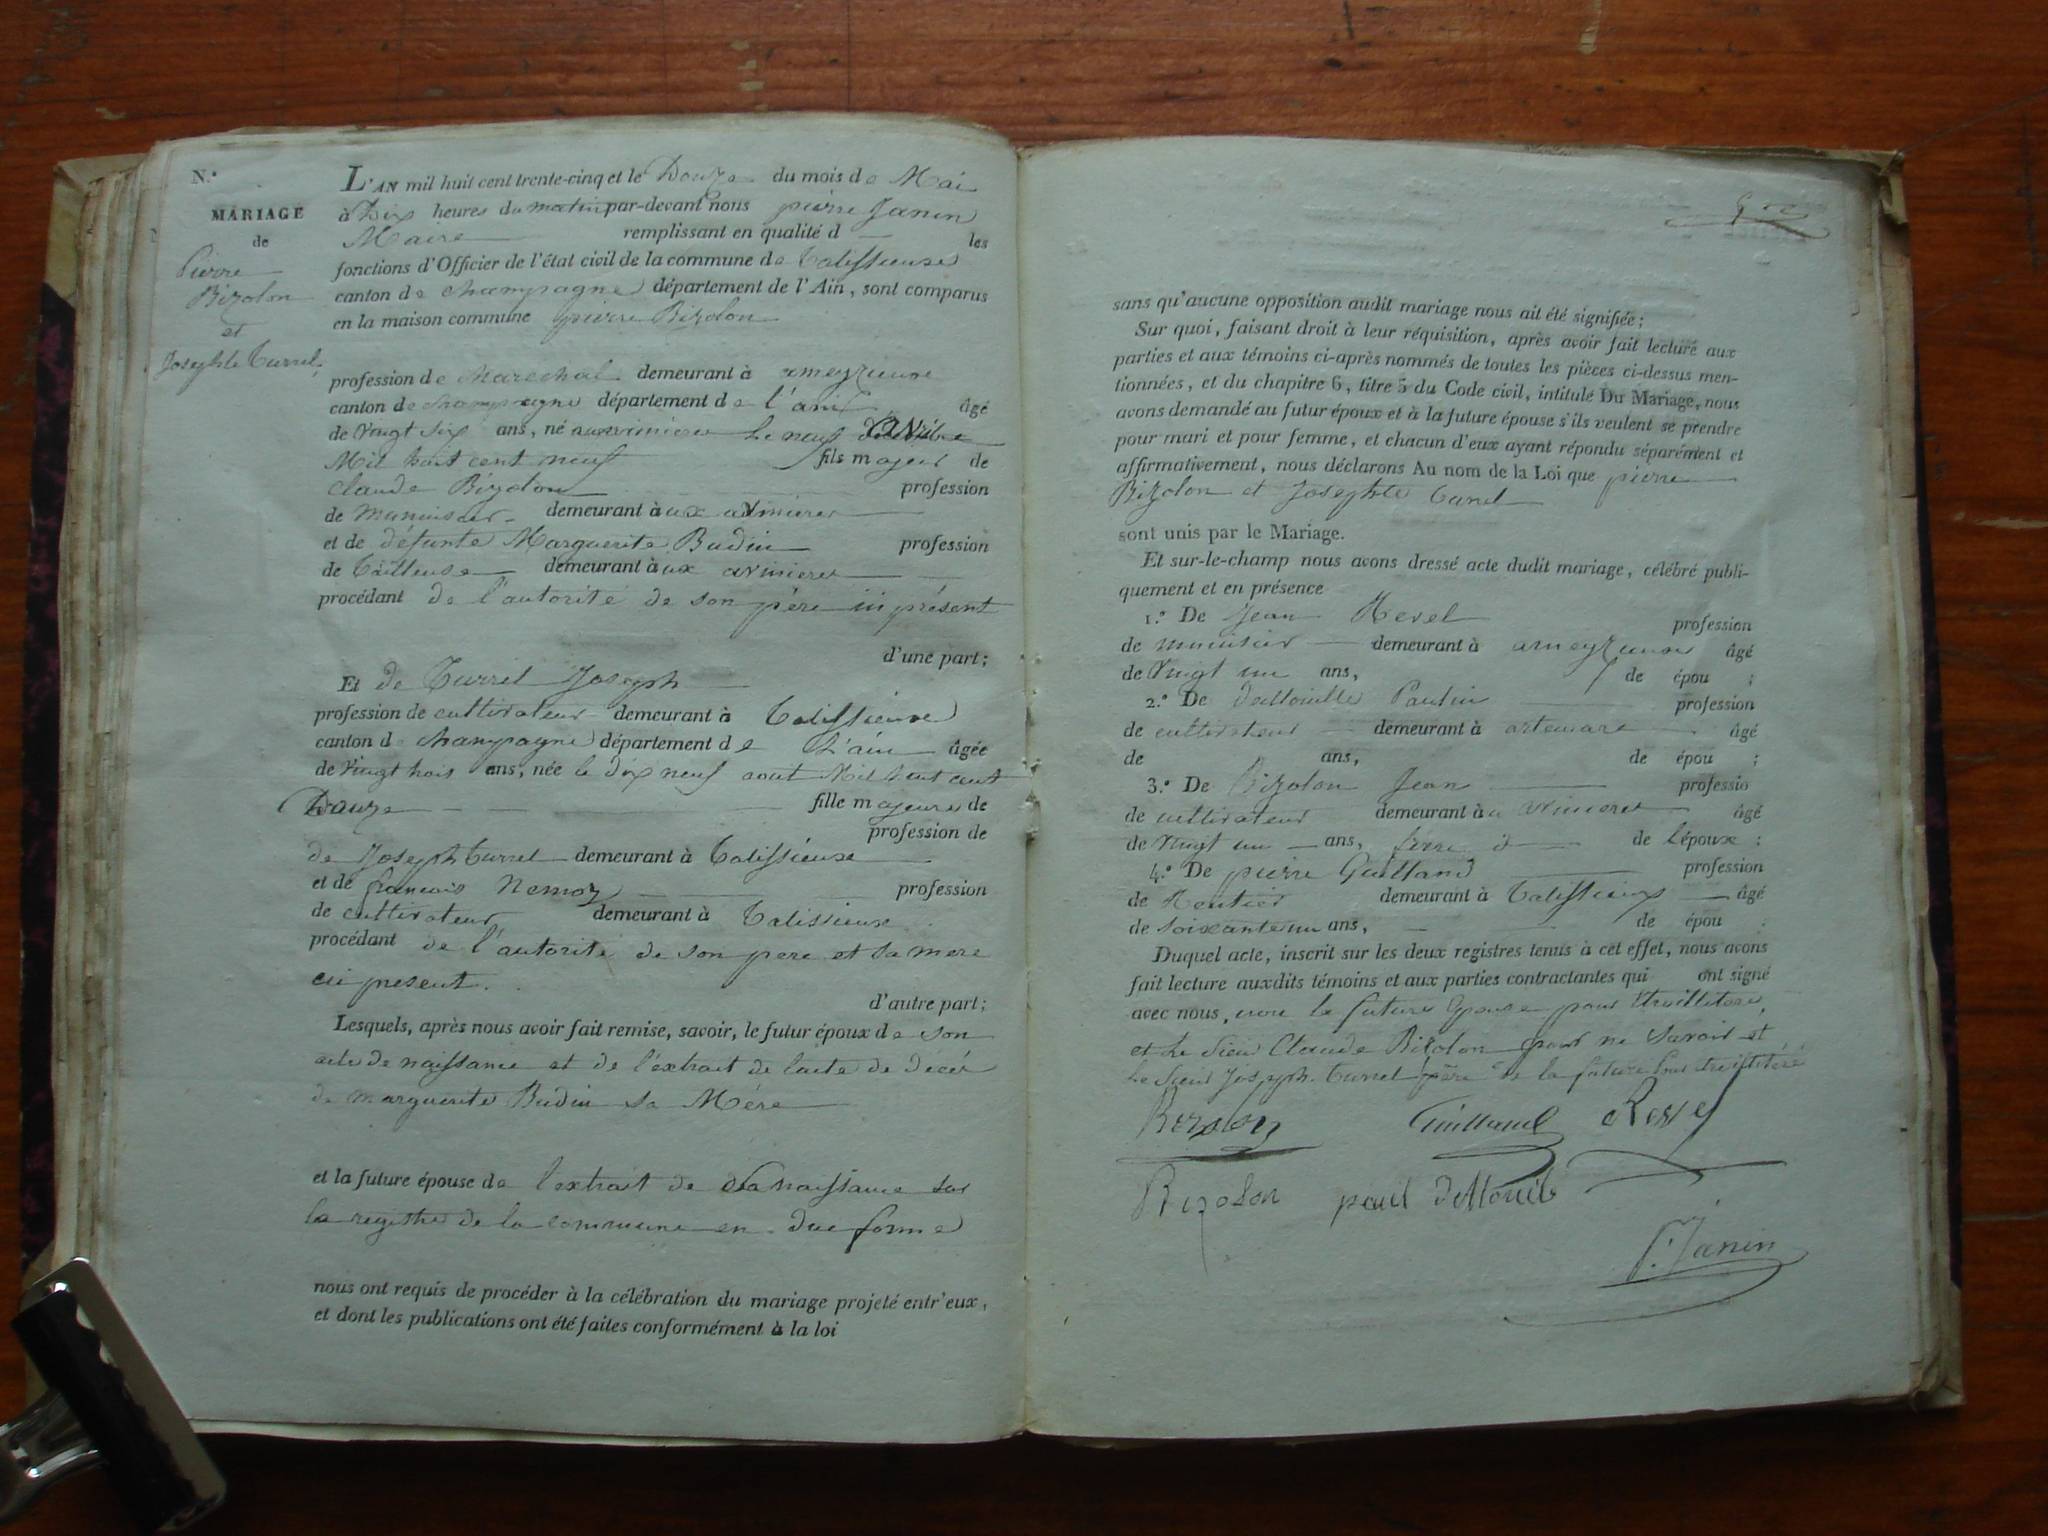 N.º
MARIAGE
de
Pierre
Bizolon
et
Josephte Turrel,
L'AN mil huit cent trente-cinq et le Douze du mois de Mai
à Dix heures du matin par-devant nous pierre Janin
Maire remplissant en qualité d les
fonctions d'Officier de l'état civil de la commune de Talissieux
canton de champagne département de l'Ain, sont comparus
en la maison commune pierre Bizolon
profession de Marechal demeurant à ameyzieux
canton de champagne département de l'ain âgé
de Vingt six ans, né aux avinieres le neuf
Mil huit cent neuf fils majeur de
Claude Bizolon profession
de Menuisier demeurant à aux avinieres
et de défunte Marguerite Budin profession
de Tailleuse demeurant à aux avinieres
procédant de l'autorité de son père ici présent
d'une part;
Et de Turrel Joseph
profession de cultivateur demeurant à Talissieux
canton de champagne département de L'ain âgée
de Vingt trois ans, née le dix neuf aout Mil huit cent
Douze fille majeure de
profession de
de Joseph Turrel demeurant à Talissieux
et de francois Nemoz profession
de cultivateur demeurant à Talissieux
procédant de l'autorité de son pere et sa mere
ici present.
d'autre part;
Lesquels, après nous avoir fait remise, savoir, le futur époux de son
acte de naissance et de l'extrait de lacte de décés
de Marguerite Budin sa Mére
et la future épouse de l'extrait de sa naissance sur
la registre de la commune en due forme
nous ont requis de procéder à la célébration du mariage projeté entr'eux,
et dont les publications ont été faites conformément à la loi
sans qu'aucune opposition audit mariage nous ait été signifiée;
Sur quoi, faisant droit à leur réquisition, après avoir fait lecture aux
parties et aux témoins ci-après nommés de toutes les pièces ci-dessus men-
tionnées, et du chapitre 6, titre 5 du Code civil, intitulé Du Mariage, nous
avons demandé au futur époux et à la future épouse s'ils veulent se prendre
pour mari et pour femme, et chacun d'eux ayant répondu séparément et
affirmativement, nous déclarons Au nom de la Loi que pierre
Bizolon et Josephte Turrel
sont unis par le Mariage.
Et sur-le-champ nous avons dressé acte dudit mariage, célébré publi-
quement et en présence
1.º De Jean Revel profession
de menuisier demeurant à ameyzieux âgé
de Vingt un ans, de épou ;
2.º De Paulin profession
de cultivateur demeurant à artemare âgé
de ans, de épou ;
3.º De Bizolon Jean professio
de cultivateur demeurant à avinieres âgé
de Vingt un ans, frere de lépoux ;
4.º De pierre Guilland profession
de Rentier demeurant à Talissieux âgé
de soixante un ans, de épou .
Duquel acte, inscrit sur les deux registres tenus à cet effet, nous avons
fait lecture auxdits témoins et aux parties contractantes qui ont signé
avec nous, non la future Epouse pour
et Le Sieur Claude Bizolon pour ne Savoir et
Le Sieur Joseph Turrel père de la future
Bizolon Guilland Revel
Bizolon paul
P. Janin